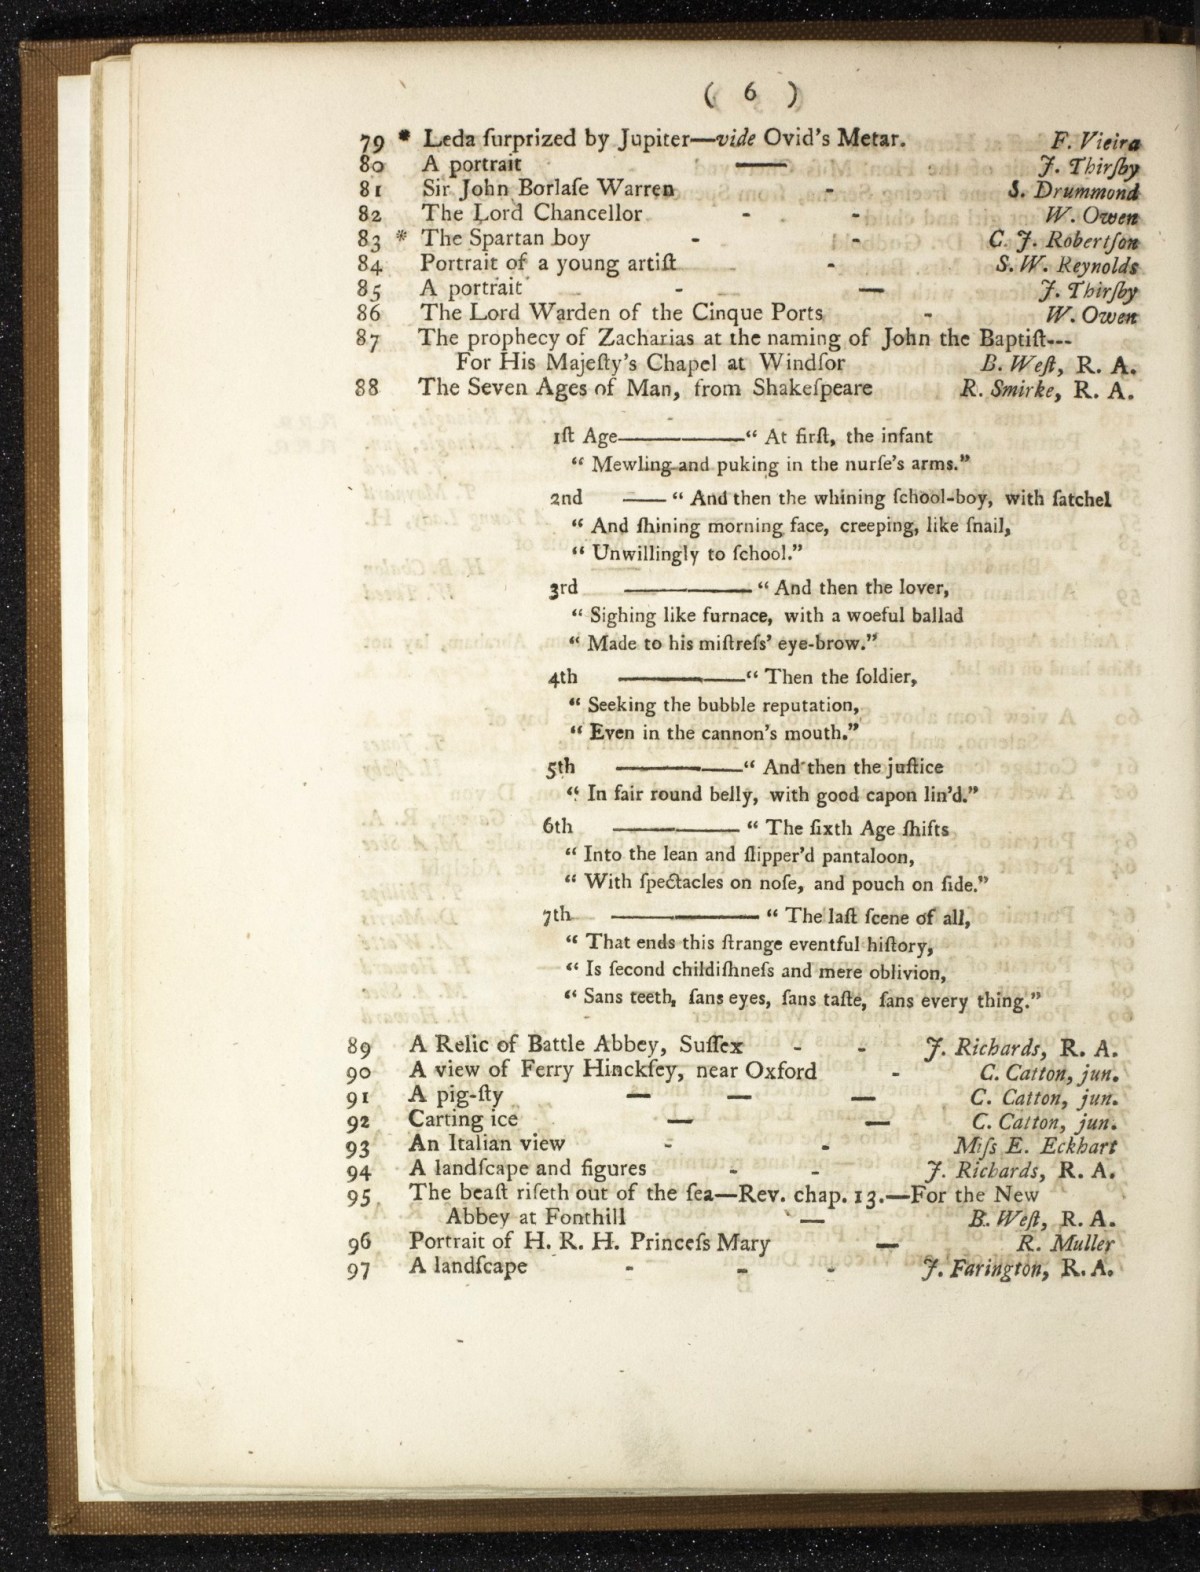 ( 6 )
79 * Leda ſurprized by Jupiter—vide Ovid's Metar. F. Vieira
80 A portrait — J. Thirſby
81 Sir John Borlaſe Warren - S. Drummond
82 The Lord Chancellor - - W. Owen
83 * The Spartan boy - - C. J. Robertſon
84 Portrait of a young artiſt - S. W. Reynolds
85 A portrait - — J. Thirſby
86 The Lord Warden of the Cinque Ports - W. Owen
87 The prophecy of Zacharias at the naming of John the Baptiſt---
For His Majeſty's Chapel at Windſor B. Weſt, R. A.
88 The Seven Ages of Man, from Shakeſpeare R. Smirke, R. A.
1ſt Age———“ At firſt, the infant
“ Mewling and puking in the nurſe's arms.”
2nd —— “ And then the whining ſchool-boy, with ſatchel
“ And ſhining morning face, creeping, like ſnail,
“ Unwillingly to ſchool.”
3rd ——— “ And then the lover,
“ Sighing like furnace, with a woeful ballad
“ Made to his miſtreſs' eye-brow.”
4th ———“ Then the ſoldier,
“ Seeking the bubble reputation,
“ Even in the cannon's mouth.”
5th ———“ And then the juſtice
“ In fair round belly, with good capon lin'd.”
6th ——— “ The ſixth Age ſhifts
“ Into the lean and ſlipper'd pantaloon,
“ With ſpectacles on noſe, and pouch on ſide.”
7th ——— “ The laſt ſcene of all,
“ That ends this ſtrange eventful hiſtory,
“ Is ſecond childiſhneſs and mere oblivion,
“ Sans teeth, ſans eyes, ſans taſte, ſans every thing.”
89 A Relic of Battle Abbey, Suſſex - - J. Richards, R. A.
90 A view of Ferry Hinckſey, near Oxford - C. Catton, jun.
91 A pig-ſty — — — C. Catton, jun.
92 Carting ice — — C. Catton, jun.
93 An Italian view - - Miſs E. Eckhart
94 A landſcape and figures - - J. Richards, R. A.
95 The beaſt riſeth out of the ſea—Rev. chap. 13.—For the New
Abbey at Fonthill — B. Weſt, R. A.
96 Portrait of H. R. H. Princeſs Mary — R. Muller
97 A landſcape - - - J. Farington, R. A.